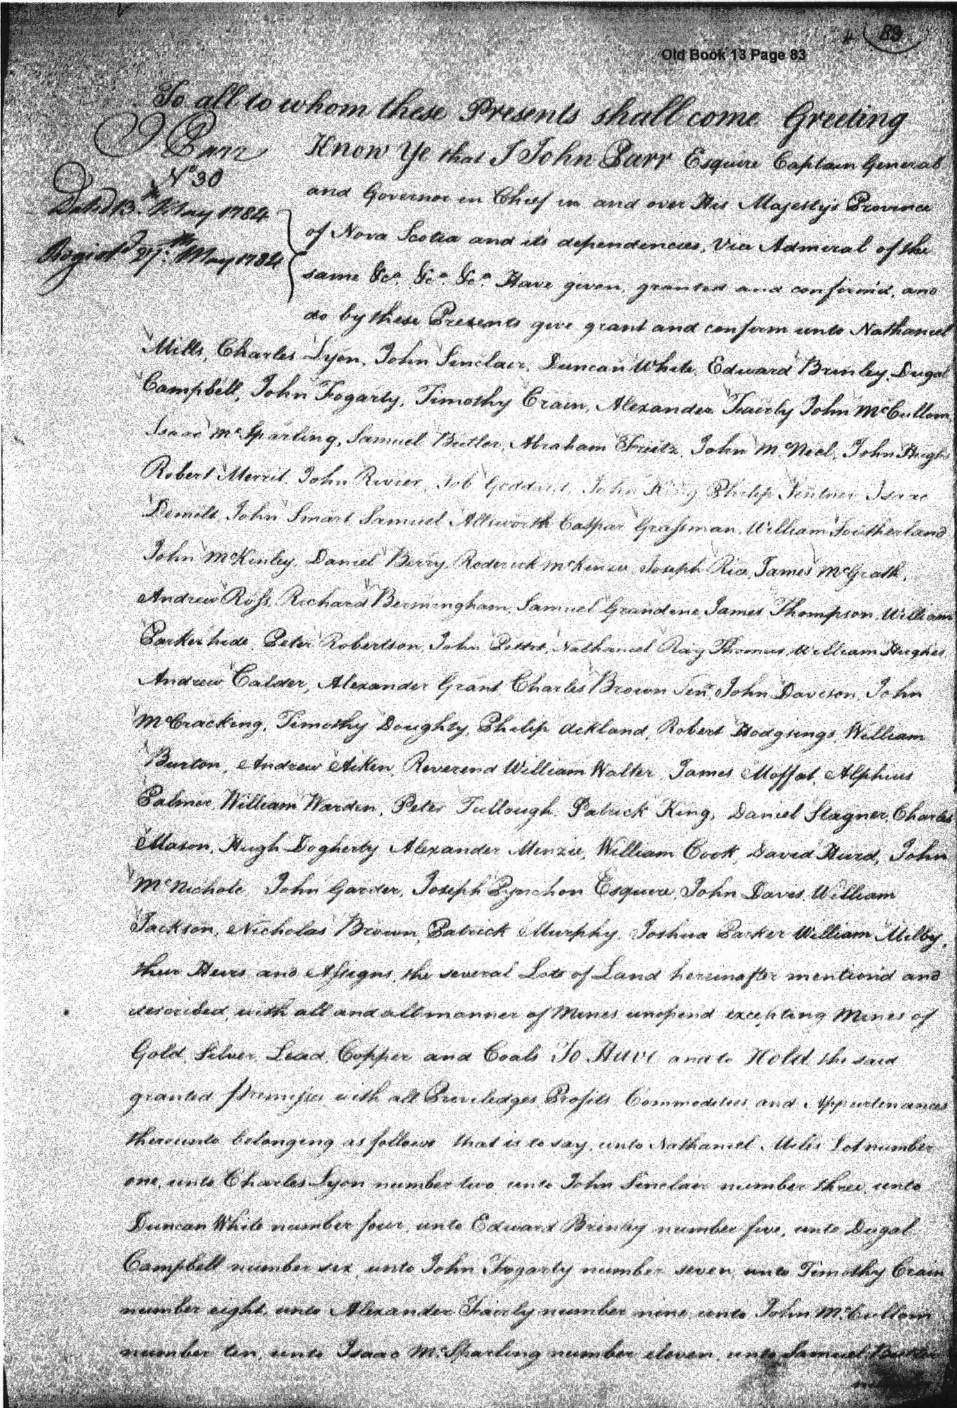 83
Old Book 13 Page 83
To all to whom these Presents shall come Greeting
J Parr
No 30
Dated 13th May 1784
Registd 27th May 1784
Know Ye that I John Parr Esquire Captain General
and Governor in Chief in and over His Majesty's Province
of Nova Scotia and its dependencies, Vice Admiral of the
same &ca. &ca. &ca. Have given, granted and confirm'd, and
do by these Presents give grant and confirm unto Nathaniel
Mills, Charles Lyon, John Sinclair, Duncan White, Edward Brinley, Dugal
Campbell, John Fogarty, Timothy Crain, Alexander Fairly John McCullom
Isaac McSparling, Samuel Butler, Abraham John McNeel, John Hughs
Robert Merrit, John Rivier, Job Goddard, John King Philip Isaac
Demilt, John Smart Samuel Allsworth Caspar Grassman, William Southerland
John McKinley, Daniel Berry, Roderick McKenzie, Joseph Rice, James McGrath,
Andrew Ross, Richard Bermingham, Samuel Grandine, James Thompson, William
Parker Peter Robertson, John Nathaniel Ray Thomas, William Hughes
Andrew Calder, Alexander Grant Charles Brown Senr John Davison, John
McCracking, Timothy Doughty, Philip Ackland, Robert Hodgsings, William
Burton, Andrew Aiken, Reverend William Walter, James Moffat, Alpheus
Palmer, William Warden, Peter Tullough, Patrick King, Daniel Slagner, Charles
Mason, Hugh Dogherty Alexander Menzie, William Cook, David Hurd, John
McNichole John Garder, Joseph Pynchon Esquire, John Daves, William
Jackson, Nicholas Brown, Patrick Murphy, Joshua Parker William Milby,
their Heirs and Assigns, the several Lots of Land herein after mentioned and
described, with all and all manner of Mines unopend excepting Mines of
Gold, Silver, Lead, Copper and Coals To Have and to Hold the said
granted Premisses with all Priviledges Profits Commodities and Appurtenances
thereunto belonging as follows that is to say, unto Nathaniel Mills Lot number
one, unto Charles Lyon number two unto John Sinclair number three, unto
Duncan White number four, unto Edward Brinley number five, unto Dugal
Campbell number six, unto John Fogarty number seven, unto Timothy Crain
number eight, unto Alexander Fairly number nine, unto John McCullom
number ten, unto Isaac McSparling number eleven, unto Samuel Butler